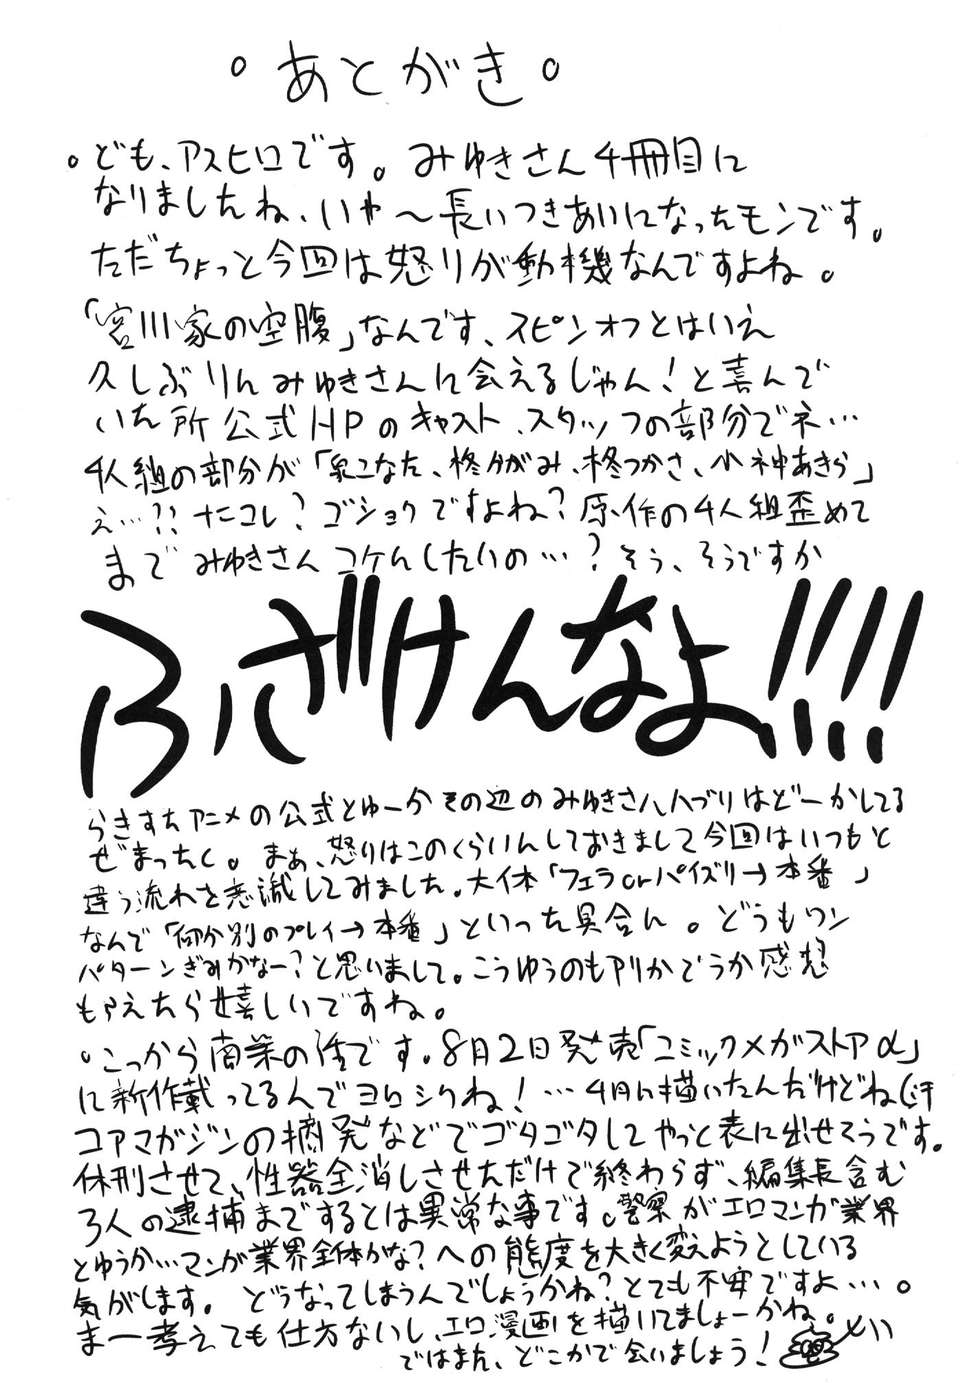 。あとがき。
。ども、アスヒロです。みゆきさん4冊目に
なりましたね、いや〜長いつきあいになったモンです。
ただちょっと今回は怒りが動機なんですよね。
「宮川家の空腹」なんです、スピンオフとはいえ
久しぶりんみゆきさんに会えるじゃん!と喜んで
いた所公式HPのキャスト、スタッフの部分でネ…
4人組の部分が「泉こなた、柊かがみ、柊つかさ、小神あきら」
え…?? ナニコレ?ゴショクですよね?原作の4人組歪めて
まで みゆきさんコケんしたいの…?そう、そうですか
ふざけんなよ!!!!
らきすたアニメの公式とゆーかその辺のみゆきさんハブリはどーかしてる
ぜまったく。まぁ、怒りはこのくらいんしておきまして今回はいつもと
違う流れを意識してみました。大体「フェラorパイズリ→本番」
なんで「何か別のプレイ→本番」といった具合ん。どうもワン
パターンぎみかなー?と思いまして。こうゆうのもアリかどうか感想
もらえたら嬉しいですね。
。こっから商業の話です。8月2日発売「コミックメガストアα」
に新作載ってるんでヨロシクね!…4月に描いたんだけどね(汗
コアマガジンの摘発などでゴタゴタしてやっと表に出せそうです。
休刊させて、性器全消しさせただけで終わらず、編集長含む
3人の逮捕まですると は異常な事です。警察がエロマンガ業界
とゆうか…マンガ業界全体かな?への態度を大きく変えようとしている
気がします。どうなってしまうんでしょうかね?とても不安ですよ…。
ま一考えても仕方ないし、エロ漫画を描いてましょーかね。
ではまた、どこかで会いましょう!